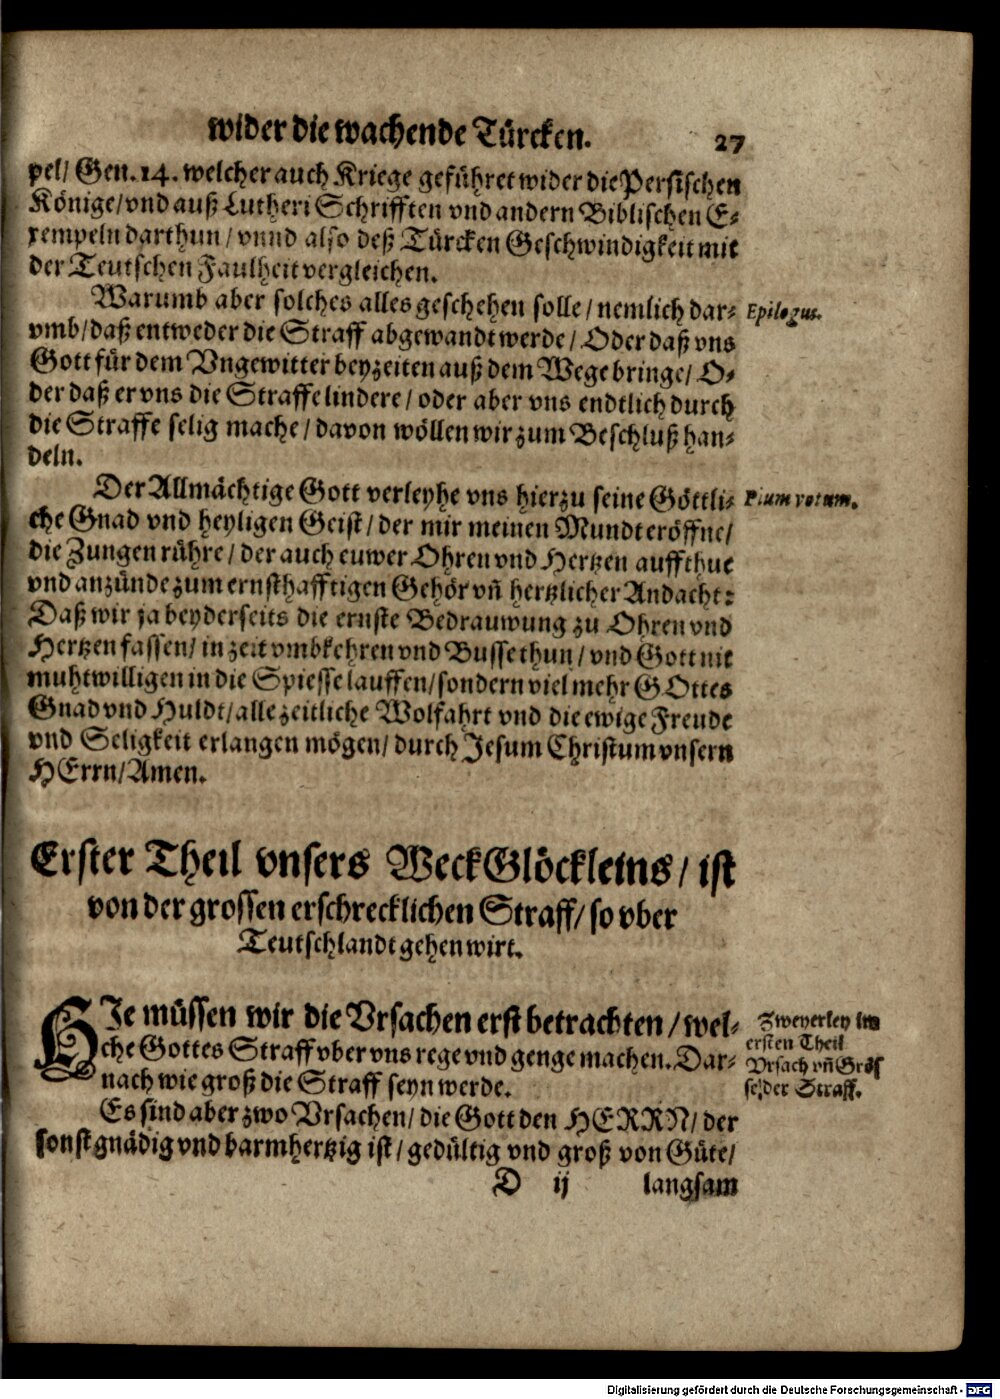 wider die wachende Türcken. 27
pel/ Gen. 14. welcher auch Kriege geführet wider die Persischen
Könige/ vnd auß Lutheri Schrifften vnd andern Biblischen E-
xempeln darthun/ vnnd also deß Türcken Geschwindigkeit mit
der Teutschen Faulheit vergleichen.
Warumb aber solches alles geschehen solle/ nemlich dar-
Epilogus.
vmb/ daß entweder die Straff abgewandt werde/ Oder daß vns
Gott für dem Vngewitter beyzeiten auß dem Wege bringe/ O-
der daß er vns die Straffe lindere/ oder aber vns endtlich durch
die Straffe selig mache/ davon wöllen wir zum Beschluß han-
deln.
Der Allmächtige Gott verleyhe vns hierzu seine Göttli-
Pium votum.
che Gnad vnd heyligen Geist/ der mir meinen Mundt eröffne/
die Zungen rühre/ der auch euwer Ohren vnd Hertzen auffthue
vnd anzünde zum ernsthafftigen Gehör vñ hertzlicher Andacht:
Daß wir ja beyderseits die ernste Bedrauwung zu Ohren vnd
Hertzen fassen/ in zeit vmbkehren vnd Busse thun/ vnd Gott nit
muhtwilligen in die Spiesse lauffen/ sondern viel mehr GOttes
Gnad vnd Huldt/ alle zeitliche Wolfahrt vnd die ewige Freude
vnd Seligkeit erlangen mögen/ durch Jesum Christum vnsern
HErrn/ Amen.
Erster Theil vnsers WeckGlöckleins/ ist
von der grossen erschrecklichen Straff/ so vber
Teutschlandt gehen wirt.
HIe müssen wir die Vrsachen erst betrachten/ wel-
che Gottes Straff vber vns rege vnd genge machen. Dar-
nach wie groß die Straff seyn werde.
Zweyerley im
ersten Theil
Vrsach vñ Grös
se/ der Straff.
Es sind aber zwo Vrsachen/ die Gott den HERRN/ der
sonst gnädig vnd barmhertzig ist/ gedültig vnd groß von Güte/
D ij langsam
Digitalisierung gefördert durch die Deutsche Forschungsgemeinschaft - DFG